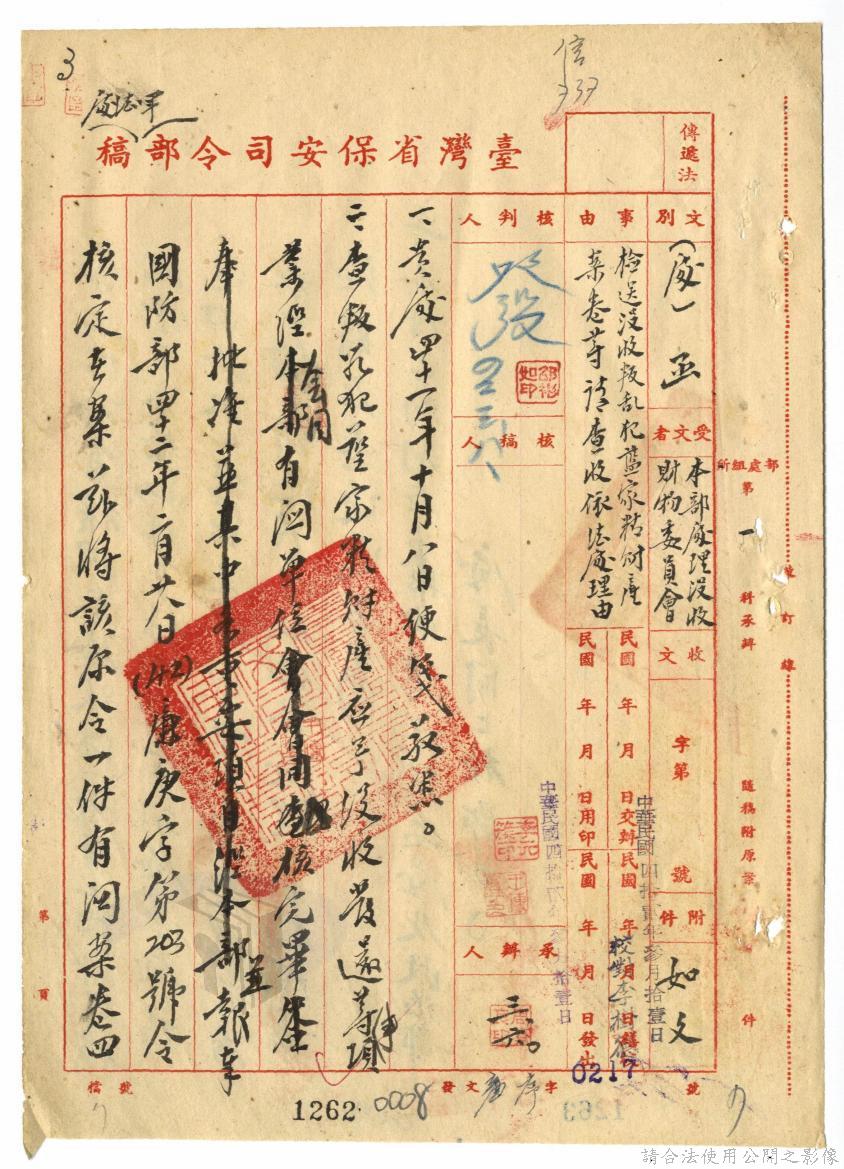 3
信
737
軍法處
臺灣省保安司令部稿
傳遞法
文別
(處)函
受文者
本部處理沒收
財物委員會
收文
字第
號
附件
如文
事由
檢送沒收叛乱犯藍家精財產
案卷等請查收依法處理由
民國 年 月 日交辦
民國 年 月 日繕
校對李
民國 年 月 日用印
民國 年 月 日發出
中華民國四拾貳年參月拾壹日
0217
核判人
發
核稿人
承辦人
三六
一、貴處四十一年十月八日便箋敬悉。
二、查叛乱犯藍家精財產應予沒收發還等項
業經本部有關單位會同查核完畢並
奉批准並
經本部報奉
國防部四十二年二月廿八日(42)廉庚字第203號令
核定在案茲將該原令一件有關案卷四
部處組所
第一科承辦
隨稿附原案
件
裝訂線
第 頁
檔號
發文
字
號
1262
0008
1263
請合法使用公開之影像